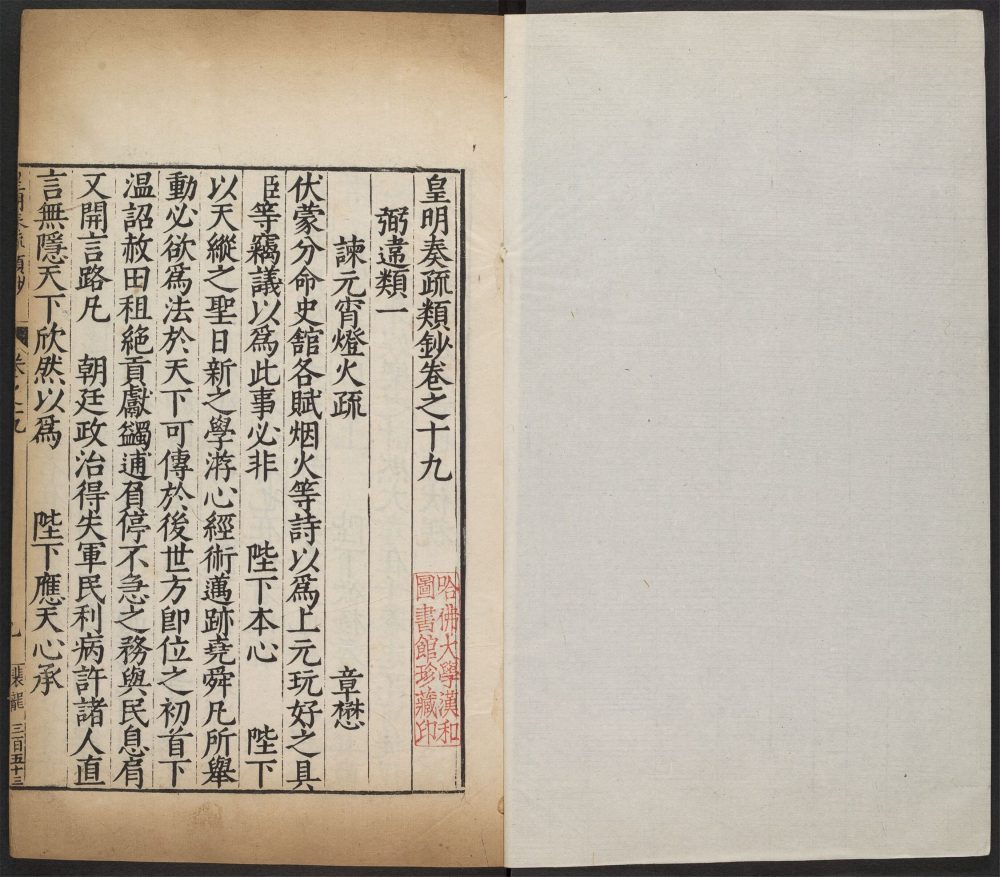 皇明奏疏類鈔卷之十九
弼違類一
諫元宵燈火疏 章懋
伏蒙分命史舘各賦烟火等詩以爲上元玩好之具
臣等竊議以爲此事必非 陛下本心 陛下
以天縱之聖日新之學游心經術邁跡堯舜凡所舉
動必欲爲法於天下可傳於後世方卽位之初首下
温詔赦田租絶貢獻蠲逋負停不急之務與民息肩
又開言路凡 朝廷政治得失軍民利病許諸人直
言無隱天下欣然以爲 陛下應天心承
皇明奏疏類鈔 卷之十九
裴龍 三百五十三
哈佛大學漢和
圖書館珍藏印